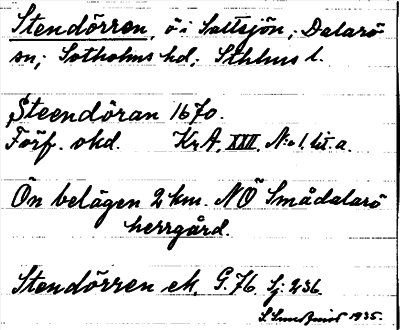 Stendörren, ö i Saltsjön, Dalarö
sn; Sotholms hd; Sthlms l.
Steendöran 1670.
Förf. okd. KrA, XXII, N:o 1. lit. a.
Ön belägen 2 km. NÖ Smådalarö
herrgård.
Stendörren ek. G. 76. Sj: 236.
1935.